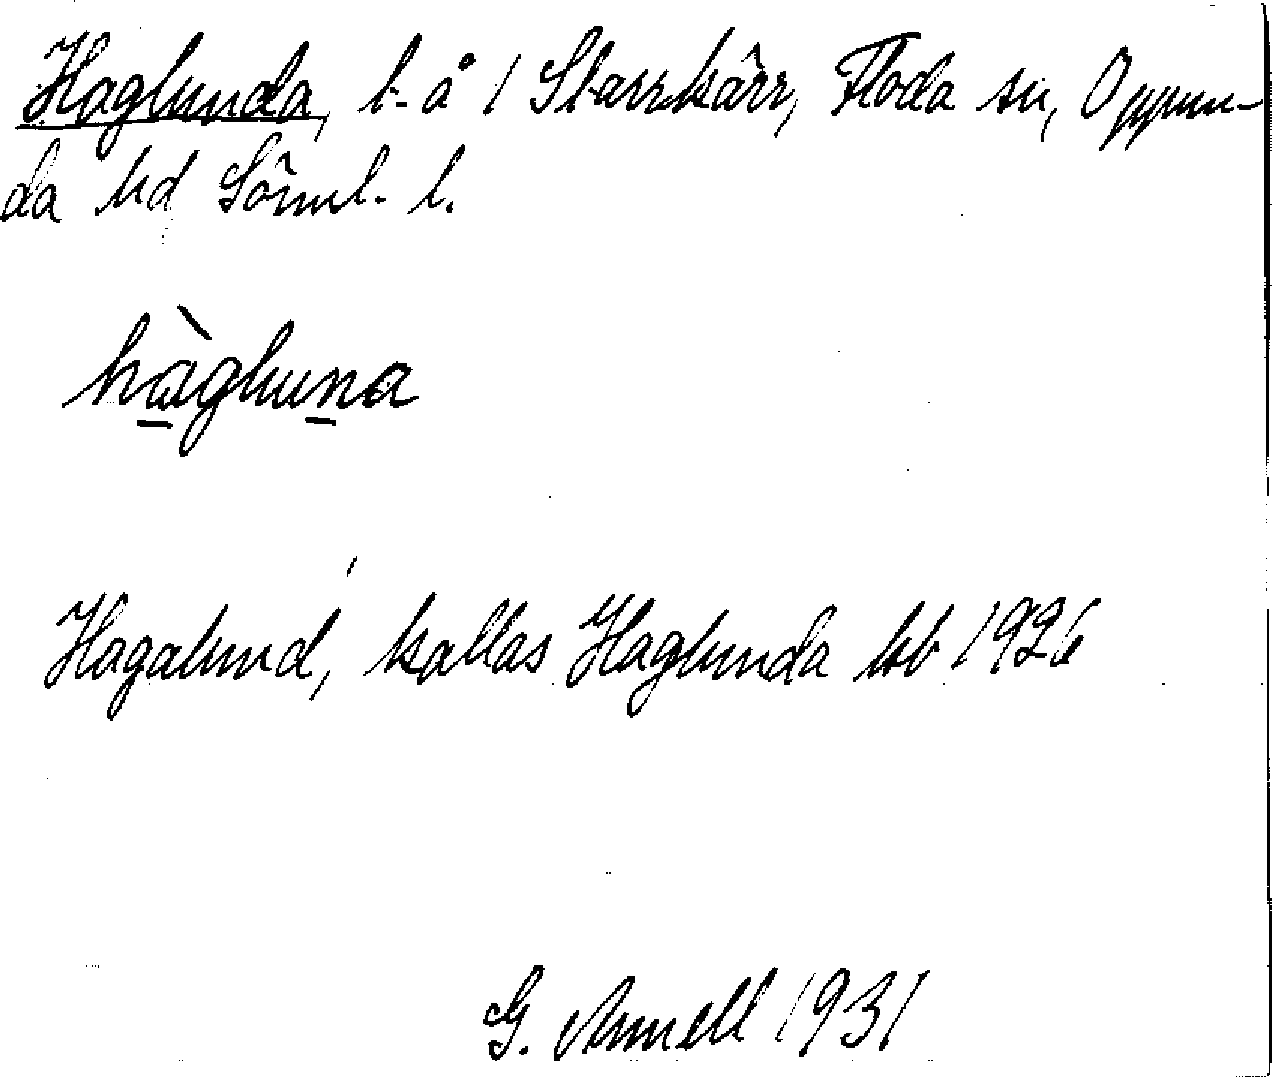 Haglunda, t. å / Starrkärr, Floda sn, Oppun-
da hd Söml. l.
hàgluna
Hagalund, kallas Haglunda hb 1926
G. Amell 1931